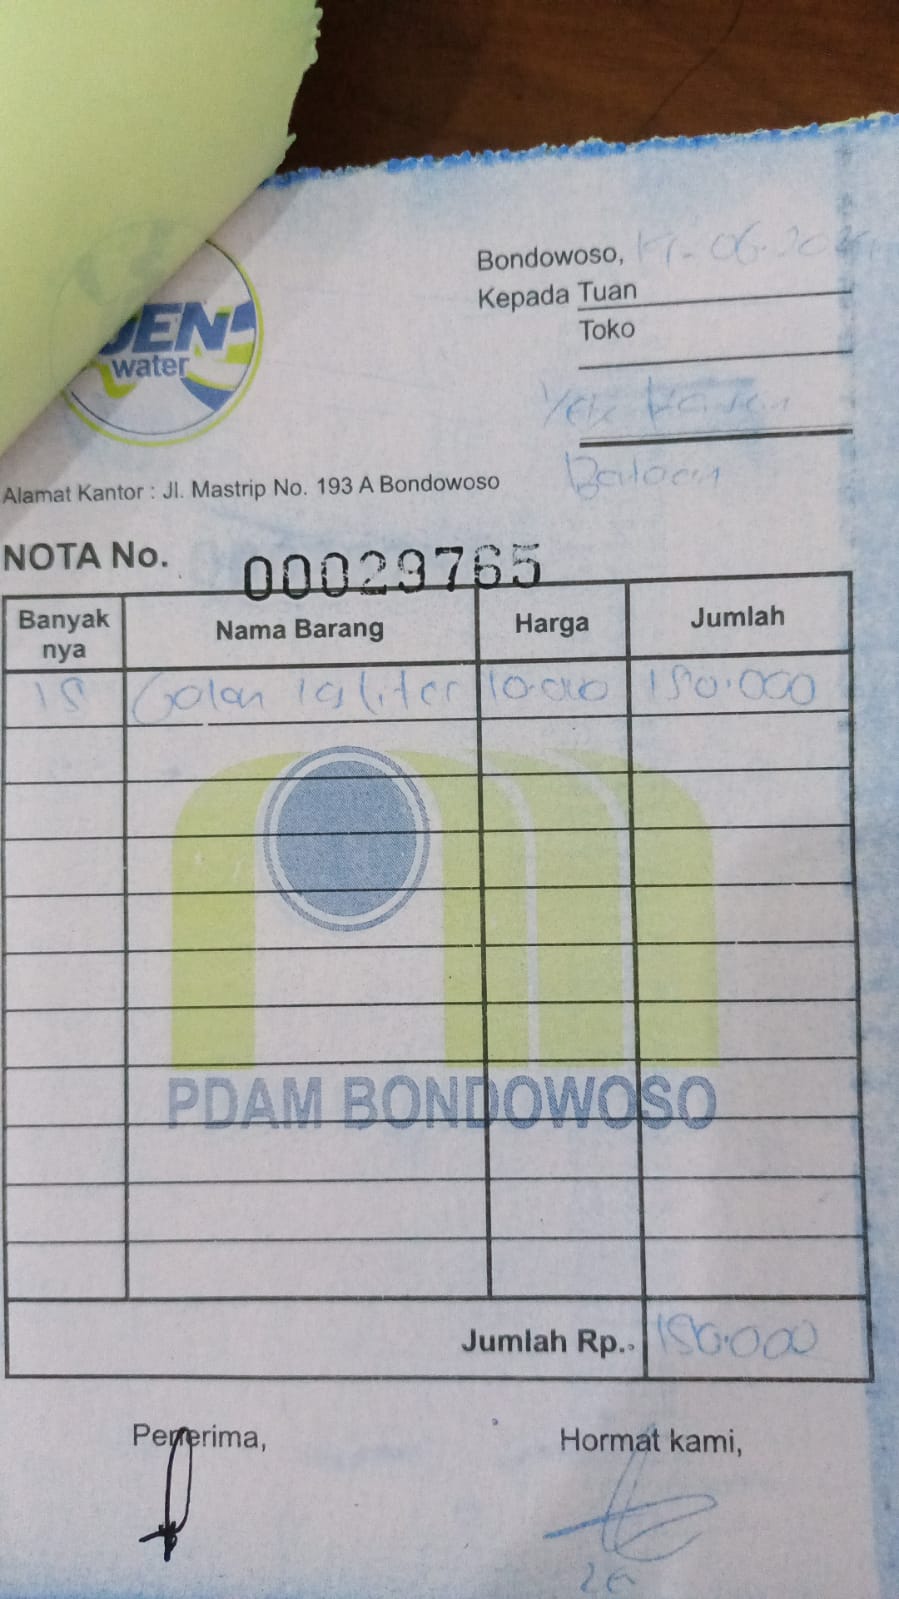 JEN
water
Bondowoso, 17-06-202
Kepada Tuan
Toko
Alamat Kantor : Jl. Mastrip No. 193 A Bondowoso
NOTA No. 00029765
Banyak nya Nama Barang Harga Jumlah
15 Galon 19 liter 10.000 150.000
PDAM BONDOWOSO
Jumlah Rp.. 150.000
Penerima, Hormat kami,